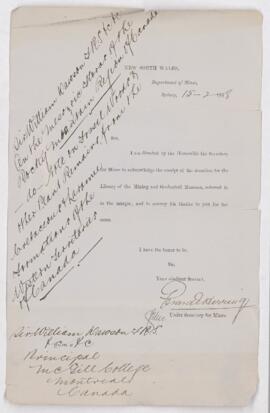 NEW SOUTH WALES,
Department of Mines,
Sydney, 15-2-1888
Sir William Dawson F.R.S. &c. &c.
On the Mesozoic Floras of the
Rocky Mountain Region of Canada
— do — Note on Fossil Woods &
other Plant Remains, from the
Cretaceous & Laramie
Formations of the
Western Territories
of Canada
SIR,
I am directed by the Honorable the Secretary
for Mines to acknowledge the receipt of the donation for the
Library of the Mining and Geological Museum, referred to
in the margin, and to convey his thanks to you for the
same.
I have the honor to be,
Sir,
Your obedient Servant,
Under Secretary for Mines
Sir William Dawson F.R.S.
Principal
McGill College
Montreal
Canada